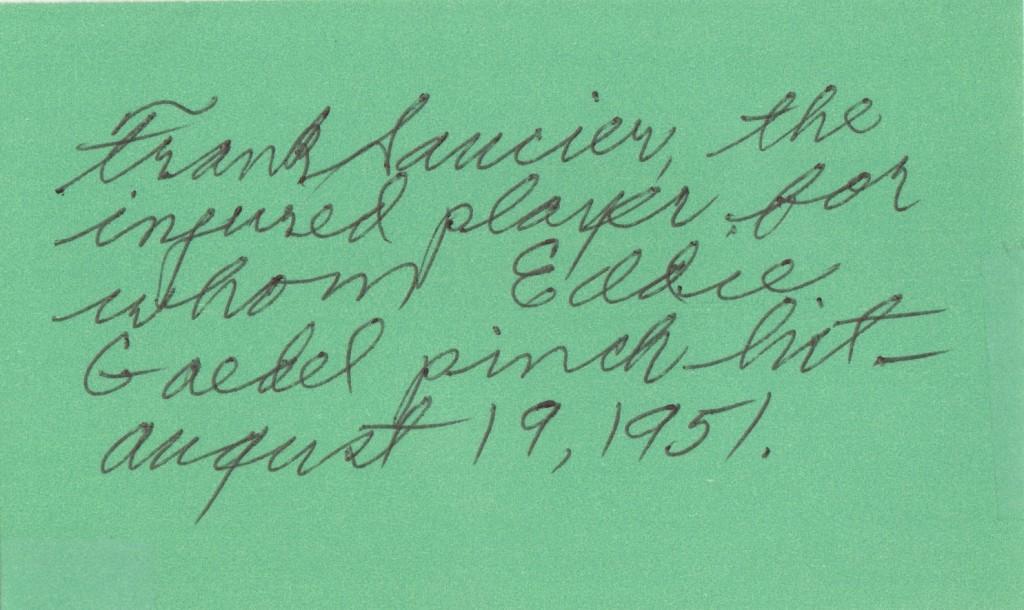 Frank Saucier, the
injured player for
whom Eddie
Gaedel pinch-hit-
august 19, 1951.